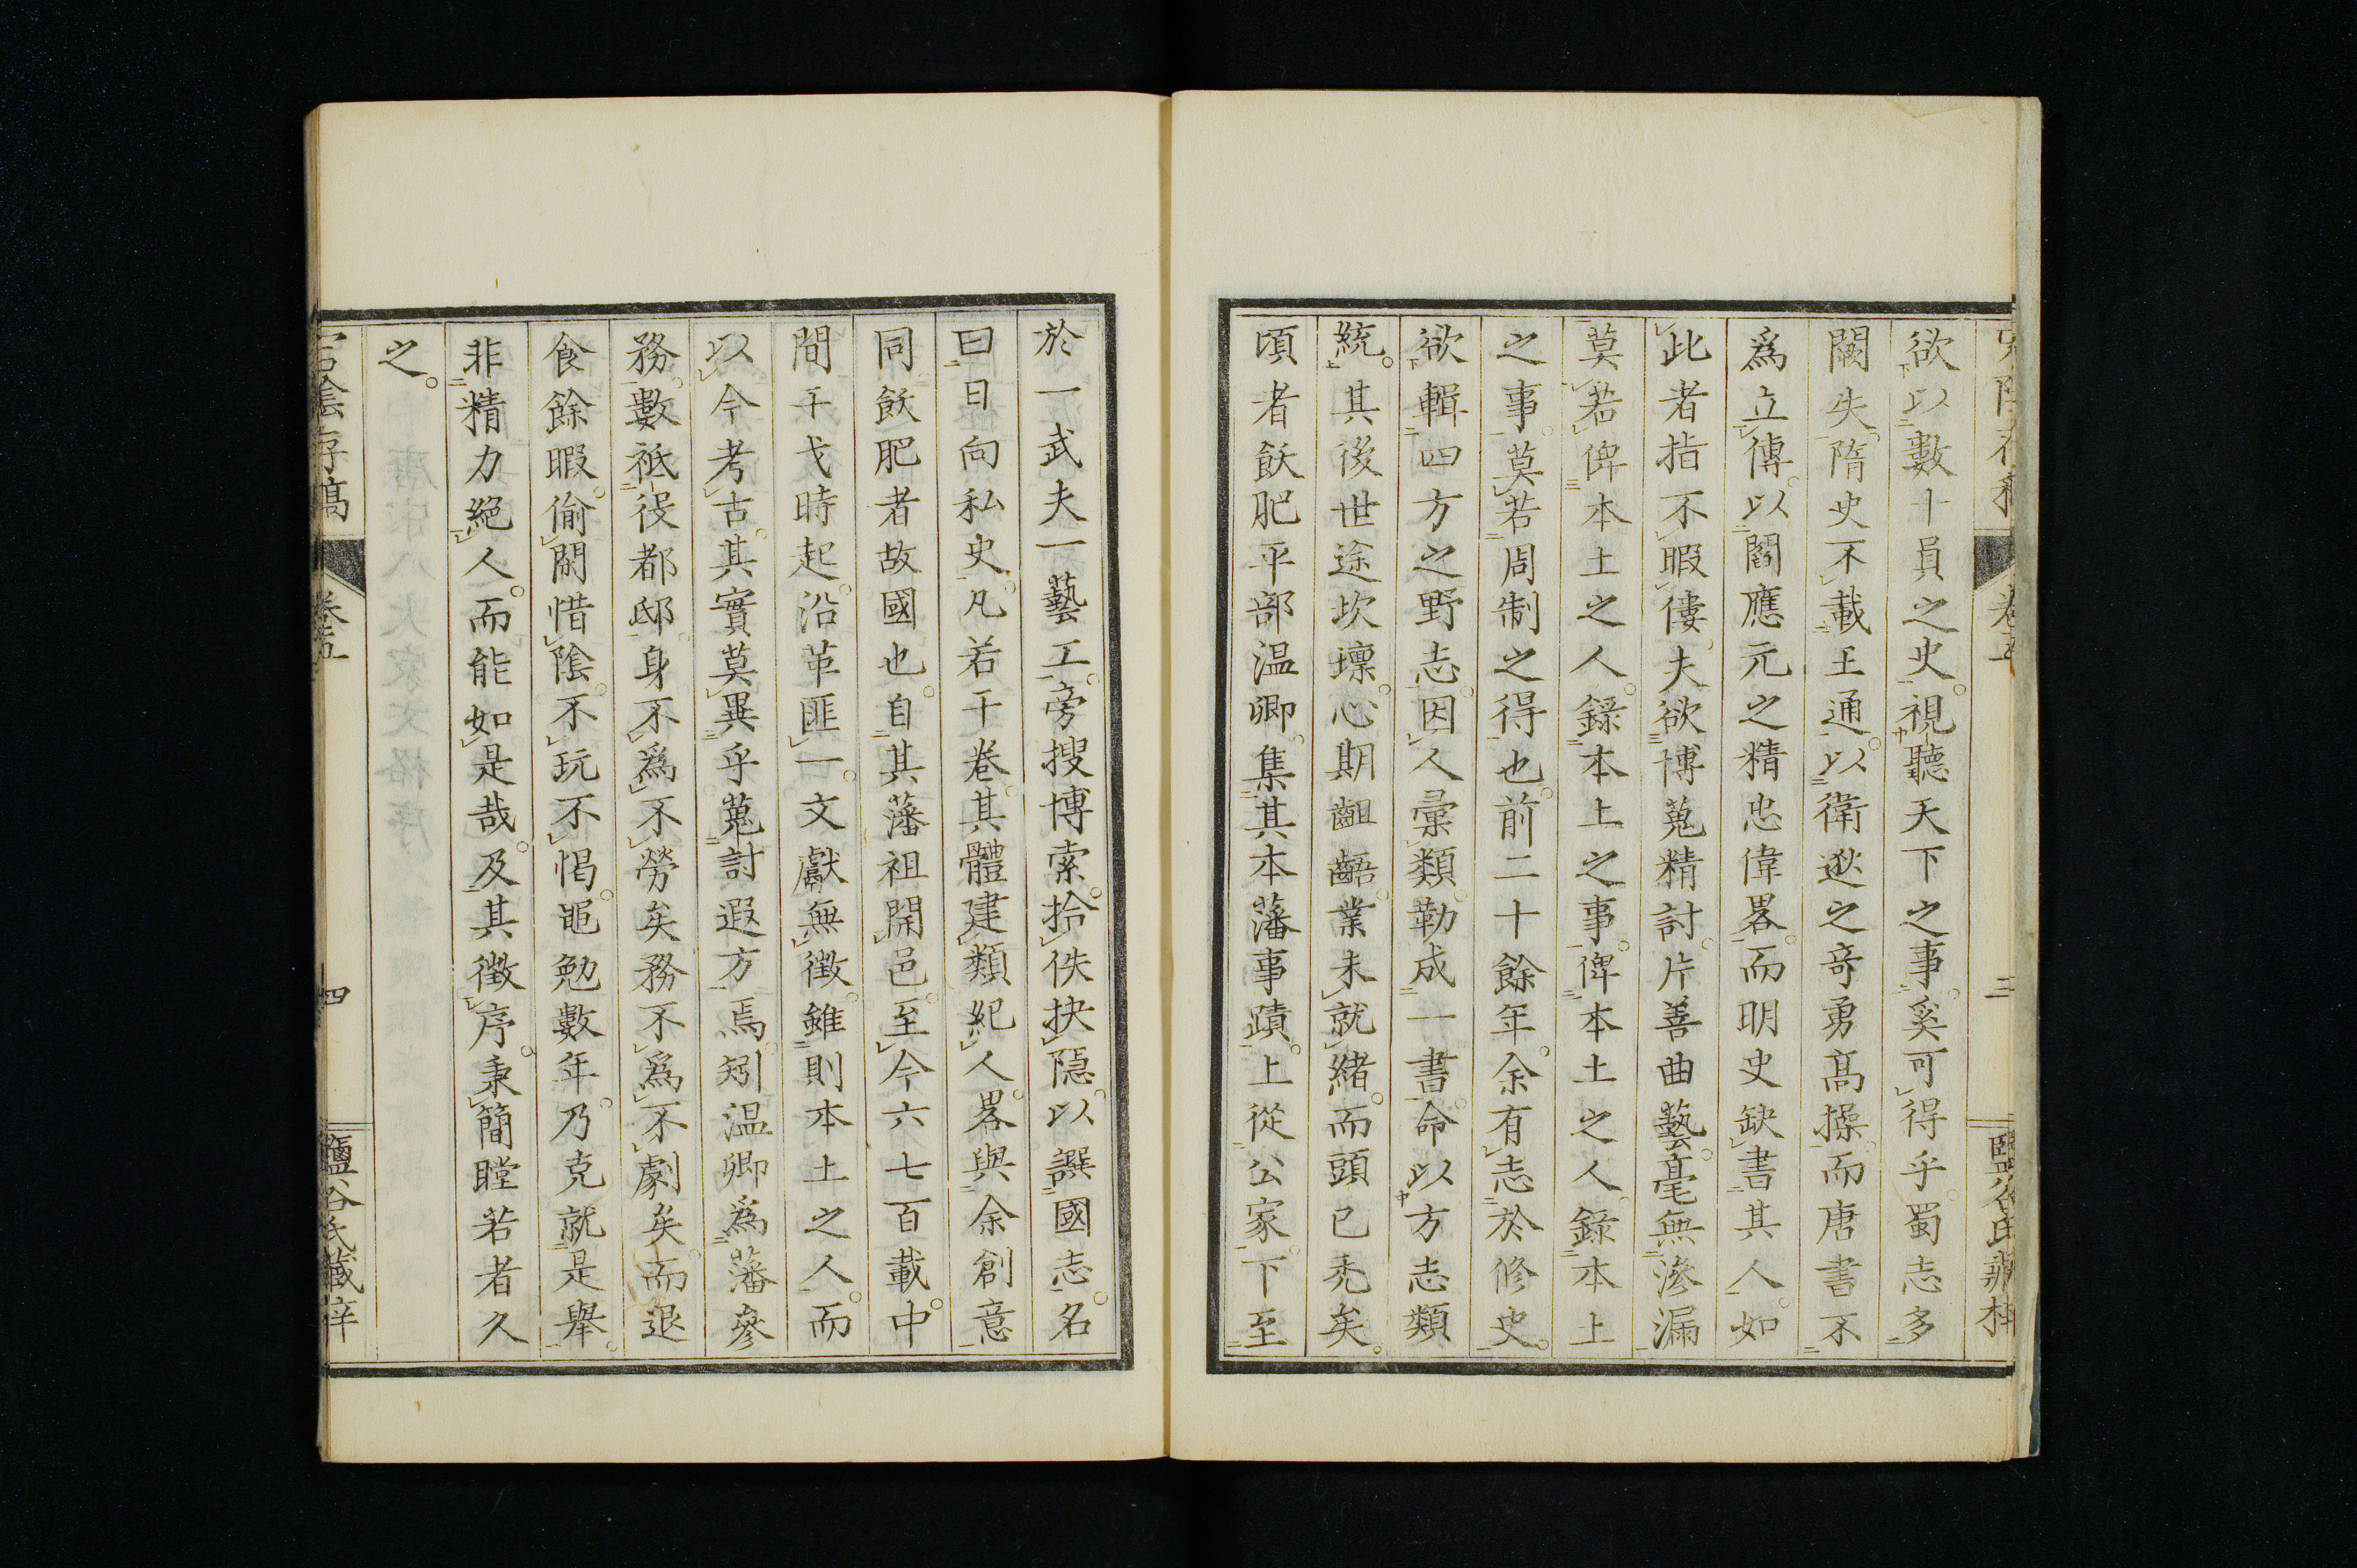 欲以數十員之史。視聽天下之事。奚可得乎。蜀志多
闕失。隋史不載王通。以衛逖之奇勇高操。而唐書不
爲立傳。以閻應元之精忠偉畧。而明史缺書其人。如
此者指不暇僂。夫欲博蒐精討。片善曲藝。毫無滲漏
莫若俾本土之人。錄本土之事。俾本土之人。錄本土
之事。莫若周制之得也。前二十餘年。余有志於修史。
欲輯四方之野志。因人彙類。勒成一書。命以方志類
統。其後世途坎壈。心期齟齬。業未就緒。而頭已禿矣。
頃者飫肥平部温卿。集其本藩事蹟。上從公家。下至
於一武夫一藝工。旁搜博索。拾佚抉隱。以譔國志。名
曰日向私史。凡若干卷。其體建類紀人畧。與余創意
同。飫肥者故國也。自其藩祖開邑。至今六七百載。中
間干戈時起。沿革匪一。文獻無徵。雖則本土之人。而
以今考古。其實莫異乎蒐討遐方焉。矧温卿爲藩參
務。數祗役都邸。身不爲不勞矣。務不爲不劇矣。而退
食餘暇。偷閒惜陰。不玩不愒。黽勉數年。乃克就是舉。
非精力絕人。而能如是哉。及其徵序。秉簡瞠若者久
之。
宕陰存稿 卷五 四 鹽谷氏藏梓